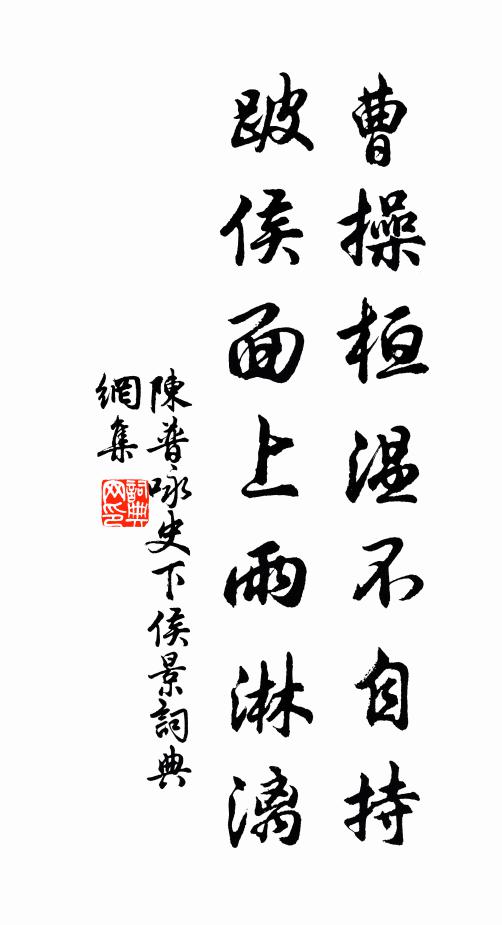 曹操桓温不自持
跛侯面上雨淋漓
陳普咏史下侯景詞典
網集
詞典
网印